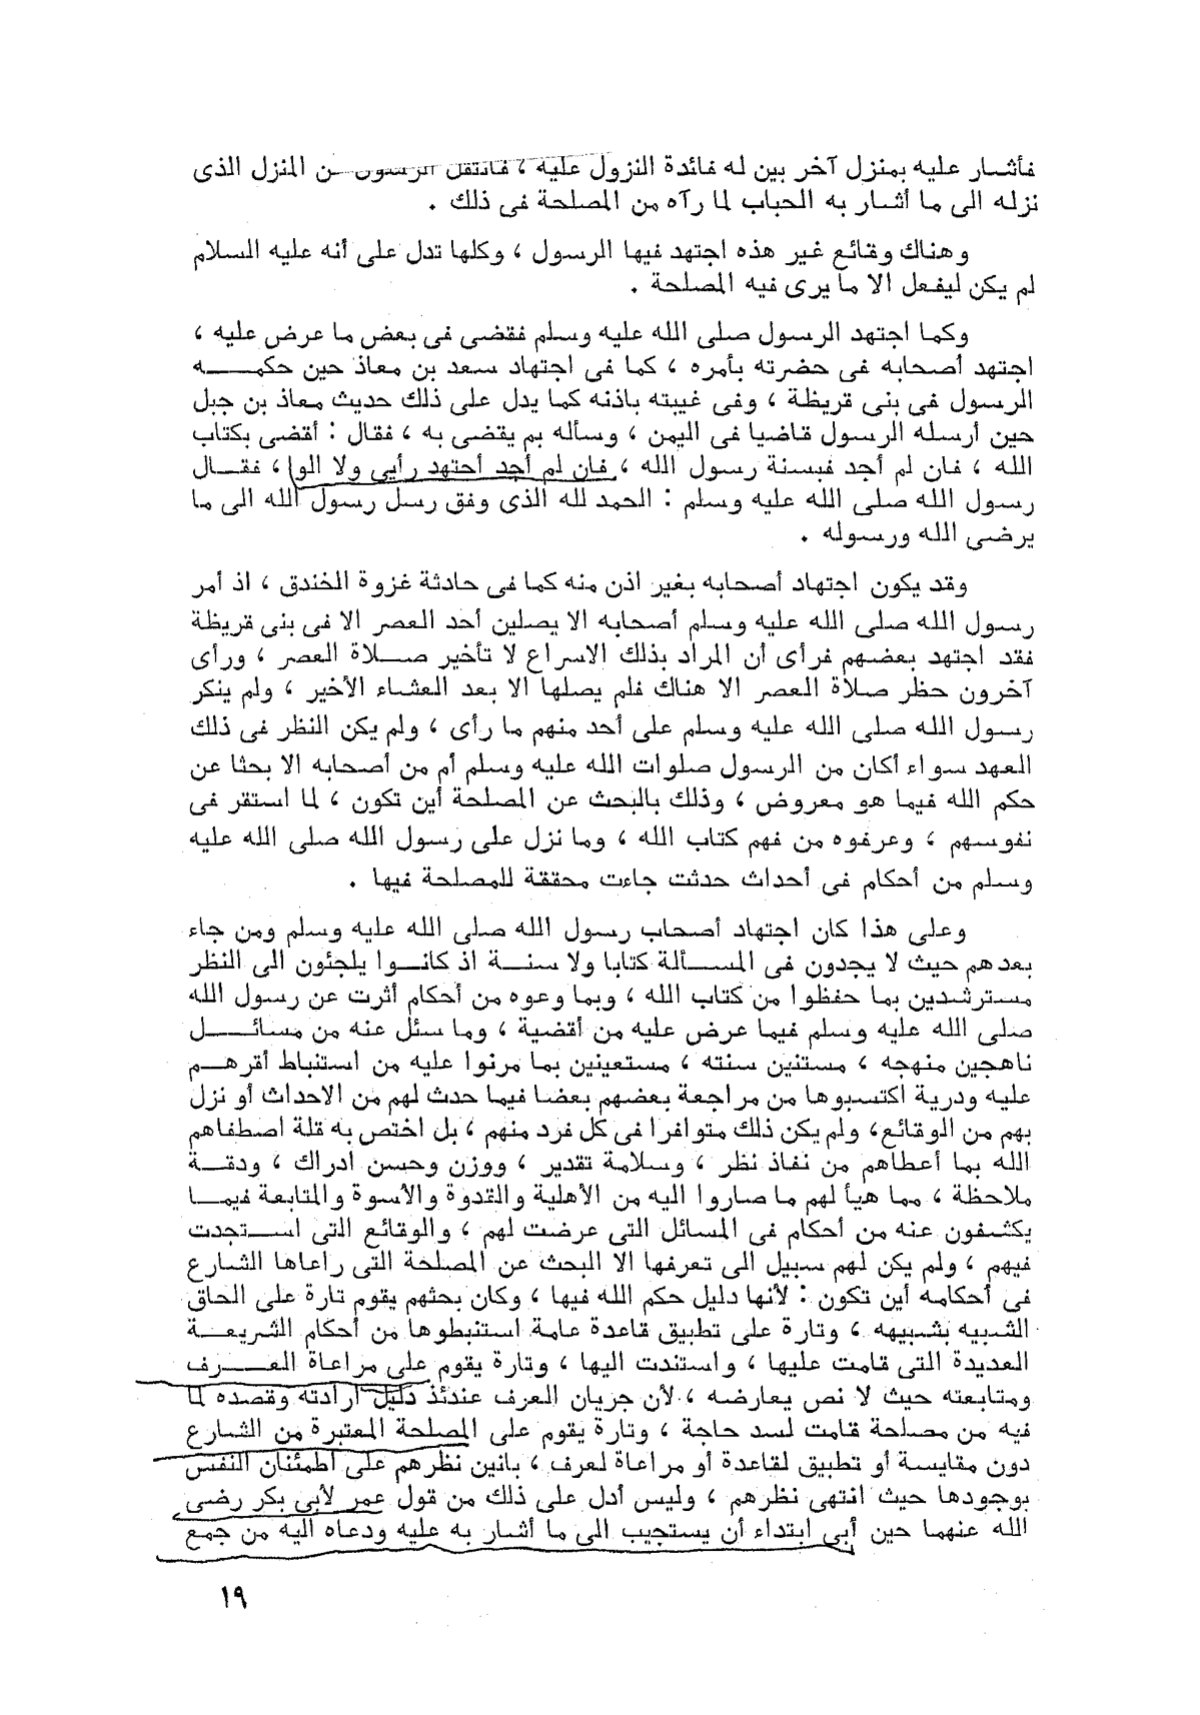 فأشار عليه بمنزل آخر بين له فائدة النزول عليه ، فانتقل الرسول من المنزل الذى
نزله الى ما أشار به الحباب لما رآه من المصلحة فى ذلك .
وهناك وقائع غير هذه اجتهد فيها الرسول ، وكلها تدل على أنه عليه السلام
لم يكن ليفعل الا ما يرى فيه المصلحة .
وكما اجتهد الرسول صلى الله عليه وسلم فقضى فى بعض ما عرض عليه ،
اجتهد أصحابه فى حضرته بأمره ، كما فى اجتهاد سعد بن معاذ حين حكمه
الرسول فى بنى قريظة ، وفى غيبته باذنه كما يدل على ذلك حديث معاذ بن جبل
حين أرسله الرسول قاضيا فى اليمن ، وسأله بم يقضى به ، فقال : أقضى بكتاب
الله ، فان لم أجد فبسنة رسول الله ، فان لم أجد أجتهد رأيى ولا الوا ، فقال
رسول الله صلى الله عليه وسلم : الحمد لله الذى وفق رسل رسول الله الى ما
يرضى الله ورسوله .
وقد يكون اجتهاد أصحابه بغير اذن منه كما فى حادثة غزوة الخندق ، اذ أمر
رسول الله صلى الله عليه وسلم أصحابه الا يصلين أحد العصر الا فى بنى قريظة
فقد اجتهد بعضهم فرأى أن المراد بذلك الاسراع لا تأخير صلاة العصر ، ورأى
آخرون حظر صلاة العصر الا هناك فلم يصلها الا بعد العشاء الأخير ، ولم ينكر
رسول الله صلى الله عليه وسلم على أحد منهم ما رأى ، ولم يكن النظر فى ذلك
العهد سواء أكان من الرسول صلوات الله عليه وسلم أم من أصحابه الا بحثا عن
حكم الله فيما هو معروض ، وذلك بالبحث عن المصلحة أين تكون ، لما استقر فى
نفوسهم ، وعرفوه من فهم كتاب الله ، وما نزل على رسول الله صلى الله عليه
وسلم من أحكام فى أحداث حدثت جاءت محققة للمصلحة فيها .
وعلى هذا كان اجتهاد أصحاب رسول الله صلى الله عليه وسلم ومن جاء
بعدهم حيث لا يجدون فى المسألة كتابا ولا سنة اذ كانوا يلجئون الى النظر
مسترشدين بما حفظوا من كتاب الله ، وبما وعوه من أحكام أثرت عن رسول الله
صلى الله عليه وسلم فيما عرض عليه من أقضية ، وما سئل عنه من مسائل
ناهجين منهجه ، مستنين سنته ، مستعينين بما مرنوا عليه من استنباط أقرهم
عليه ودرية اكتسبوها من مراجعة بعضهم بعضا فيما حدث لهم من الاحداث أو نزل
بهم من الوقائع، ولم يكن ذلك متوافرا فى كل فرد منهم ، بل اختص به قلة اصطفاهم
الله بما أعطاهم من نفاذ نظر ، وسلامة تقدير ، ووزن وحسن ادراك ، ودقة
ملاحظة ، مما هيأ لهم ما صاروا اليه من الأهلية والقدوة والأسوة والمتابعة فيما
يكشفون عنه من أحكام فى المسائل التى عرضت لهم ، والوقائع التى استجدت
فيهم ، ولم يكن لهم سبيل الى تعرفها الا البحث عن المصلحة التى راعاها الشارع
فى أحكامه أين تكون : لأنها دليل حكم الله فيها ، وكان بحثهم يقوم تارة على الحاق
الشبيه بشبيهه ، وتارة على تطبيق قاعدة عامة استنبطوها من أحكام الشريعة
العديدة التى قامت عليها ، واستندت اليها ، وتارة يقوم على مراعاة العرف
ومتابعته حيث لا نص يعارضه ، لأن جريان العرف عندئذ دليل ارادته وقصده لما
فيه من مصلحة قامت لسد حاجة ، وتارة يقوم على المصلحة المعتبرة من الشارع
دون مقايسة أو تطبيق لقاعدة أو مراعاة لعرف ، بانين نظرهم على اطمئنان النفس
بوجودها حيث انتهى نظرهم ، وليس أدل على ذلك من قول عمر لأبى بكر رضى
الله عنهما حين أبى ابتداء أن يستجيب الى ما أشار به عليه ودعاه اليه من جمع
١٩